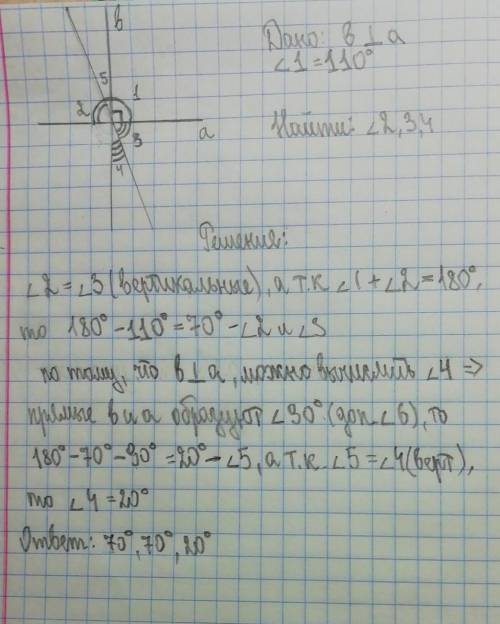 в
Дано: в ⊥ а
∠1 = 110°
5
2
1
а
3
4
Найти: ∠2,3,4
Решение:
∠2 = ∠3 (вертикальные), а т.к ∠1 + ∠2 = 180°,
то 180° - 110° = 70° - ∠2 и ∠3
по тому, что в ⊥ а, можно вычислить ∠4 =>
прямые в и а образуют ∠90° (доп. ∠6), то
180° - 70° - 90° = 20° - ∠5, а т.к. ∠5 = ∠4 (верт),
то ∠4 = 20°
Ответ: 70°, 70°, 20°